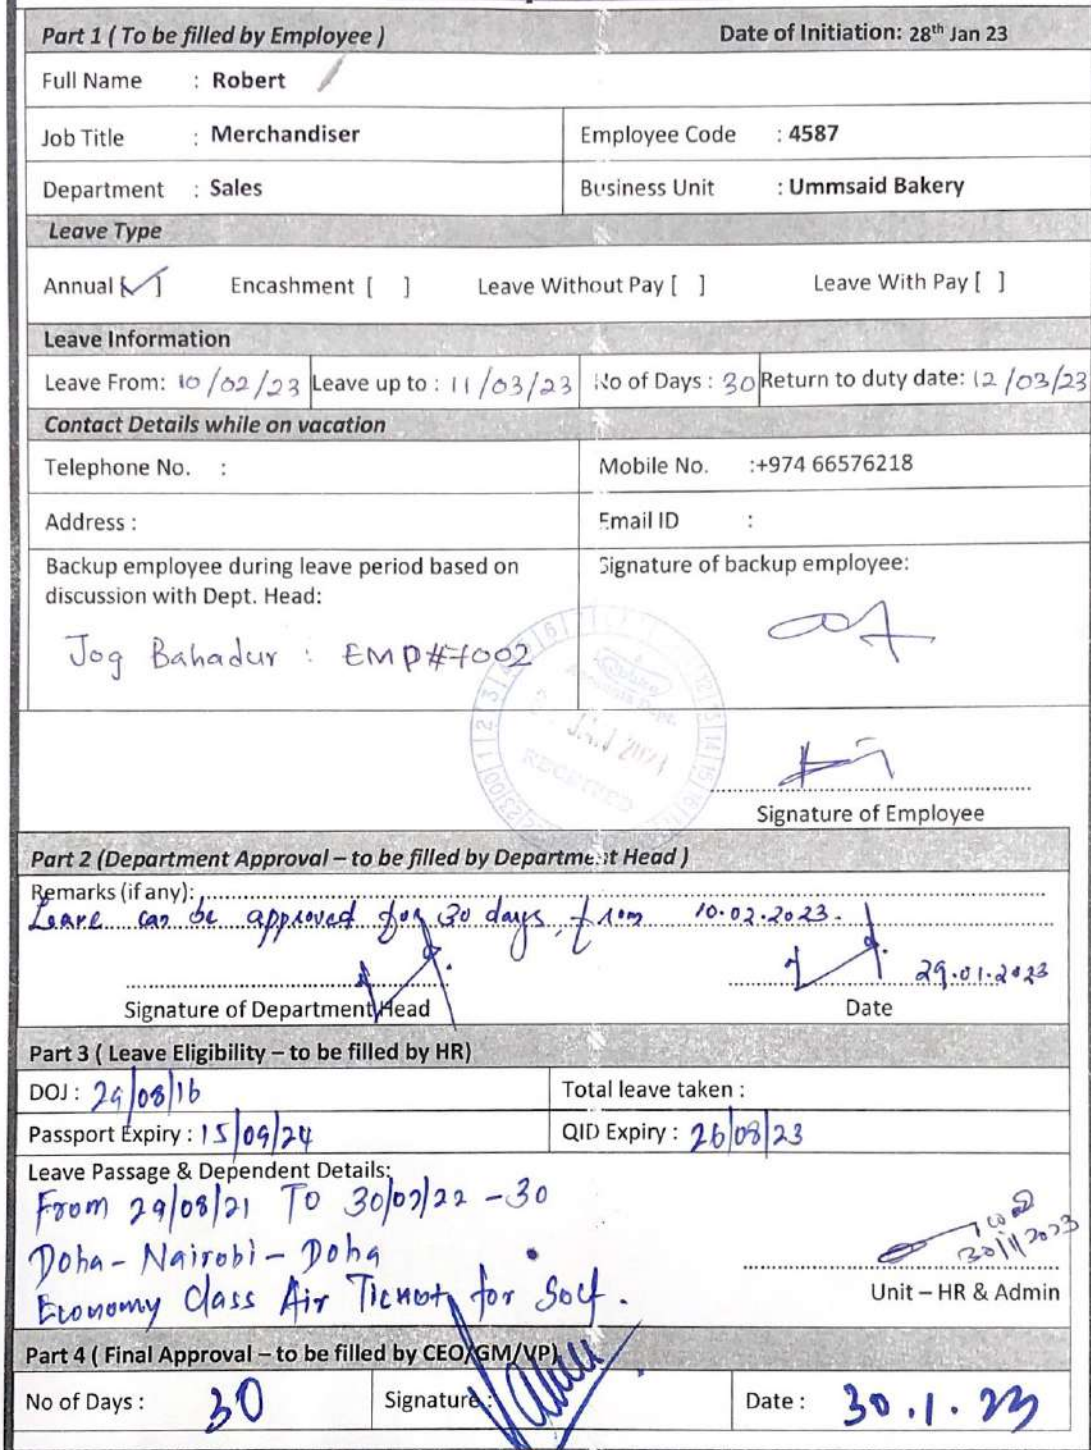 Part 1 ( To be filled by Employee ) Date of Initiation: 28th Jan 23
Full Name : Robert
Job Title : Merchandiser Employee Code : 4587
Department : Sales Business Unit : Ummsaid Bakery
Leave Type
Annual [✓] Encashment [ ] Leave Without Pay [ ] Leave With Pay [ ]
Leave Information
Leave From: 10/02/23 Leave up to : 11/03/23 No of Days : 30 Return to duty date: 12/03/23
Contact Details while on vacation
Telephone No. : Mobile No. :+974 66576218
Address : Email ID :
Backup employee during leave period based on Signature of backup employee:
discussion with Dept. Head:
Jog Bahadur : EMP#7002
RECEIVED
Signature of Employee
Part 2 (Department Approval – to be filled by Department Head )
Remarks (if any):
Leave can be approved for 30 days, from 10.02.2023.
29.01.2023
Signature of Department Head Date
Part 3 ( Leave Eligibility – to be filled by HR)
DOJ : 29/08/16 Total leave taken :
Passport Expiry : 15/09/24 QID Expiry : 26/08/23
Leave Passage & Dependent Details:
From 29/08/21 To 30/07/22 - 30
Doha - Nairobi - Doha
Economy Class Air Ticket for Self.
Unit – HR & Admin
Part 4 ( Final Approval – to be filled by CEO/GM/VP)
No of Days : 30 Signature : Date : 30.1.23